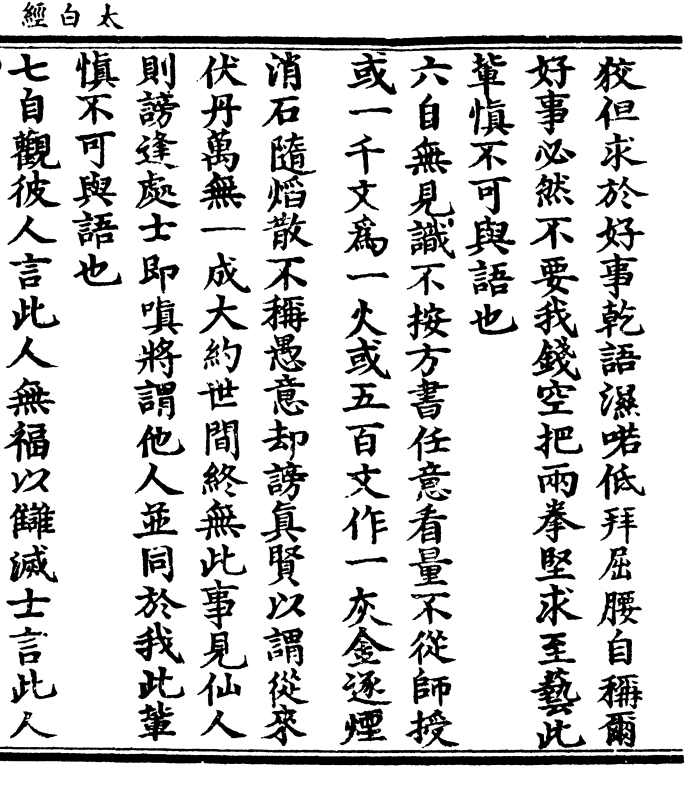 太白經
狡但求於好事乾語濕喏低拜屈腰自稱爾
好事必然不要我錢空把兩拳堅求至藝此
輩慎不可與語也
六自無見識不按方書任意看量不從師授
或一千文爲一火或五百文作一灰金逐煙
消石隨焰散不稱愚意却謗真賢以謂從來
伏丹萬無一成大約世間終無此事見仙人
則謗逢處士即嗔將謂他人並同於我此輩
慎不可與語也
七自觀彼人言此人無福以讎滅士言此人